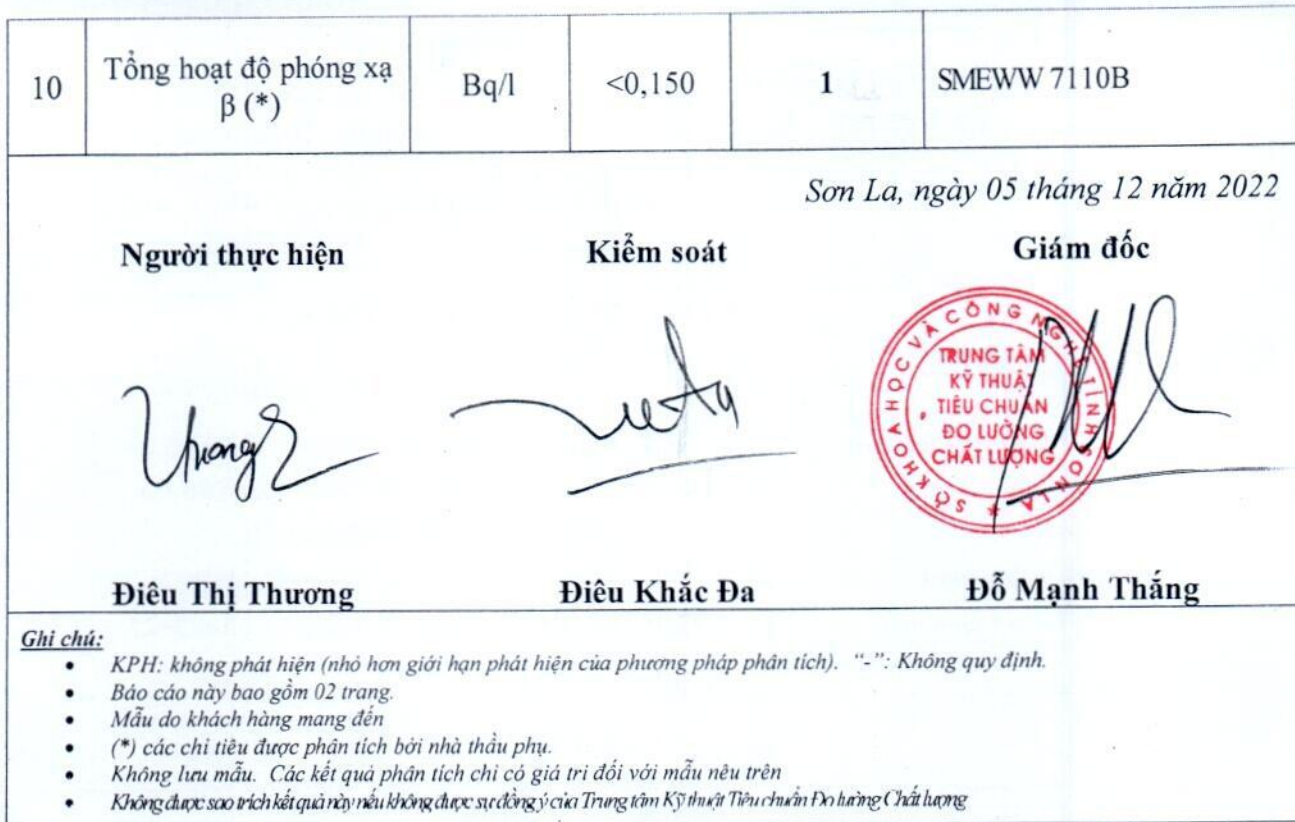 10 Tổng hoạt độ phóng xạ Bq/l <0,150 1 SMEWW 7110B
β (*)
Sơn La, ngày 05 tháng 12 năm 2022
Người thực hiện Kiểm soát Giám đốc
SỞ KHOA HỌC VÀ CÔNG NGHỆ TỈNH SƠN LA
TRUNG TÂM
KỸ THUẬT
TIÊU CHUẨN
ĐO LƯỜNG
CHẤT LƯỢNG
Điêu Thị Thương Điêu Khắc Đa Đỗ Mạnh Thắng
Ghi chú:
• KPH: không phát hiện (nhỏ hơn giới hạn phát hiện của phương pháp phân tích). “-”: Không quy định.
• Báo cáo này bao gồm 02 trang.
• Mẫu do khách hàng mang đến
• (*) các chỉ tiêu được phân tích bởi nhà thầu phụ.
• Không lưu mẫu. Các kết quả phân tích chỉ có giá trị đối với mẫu nêu trên
• Không được sao trích kết quả này nếu không được sự đồng ý của Trung tâm Kỹ thuật Tiêu chuẩn Đo lường Chất lượng